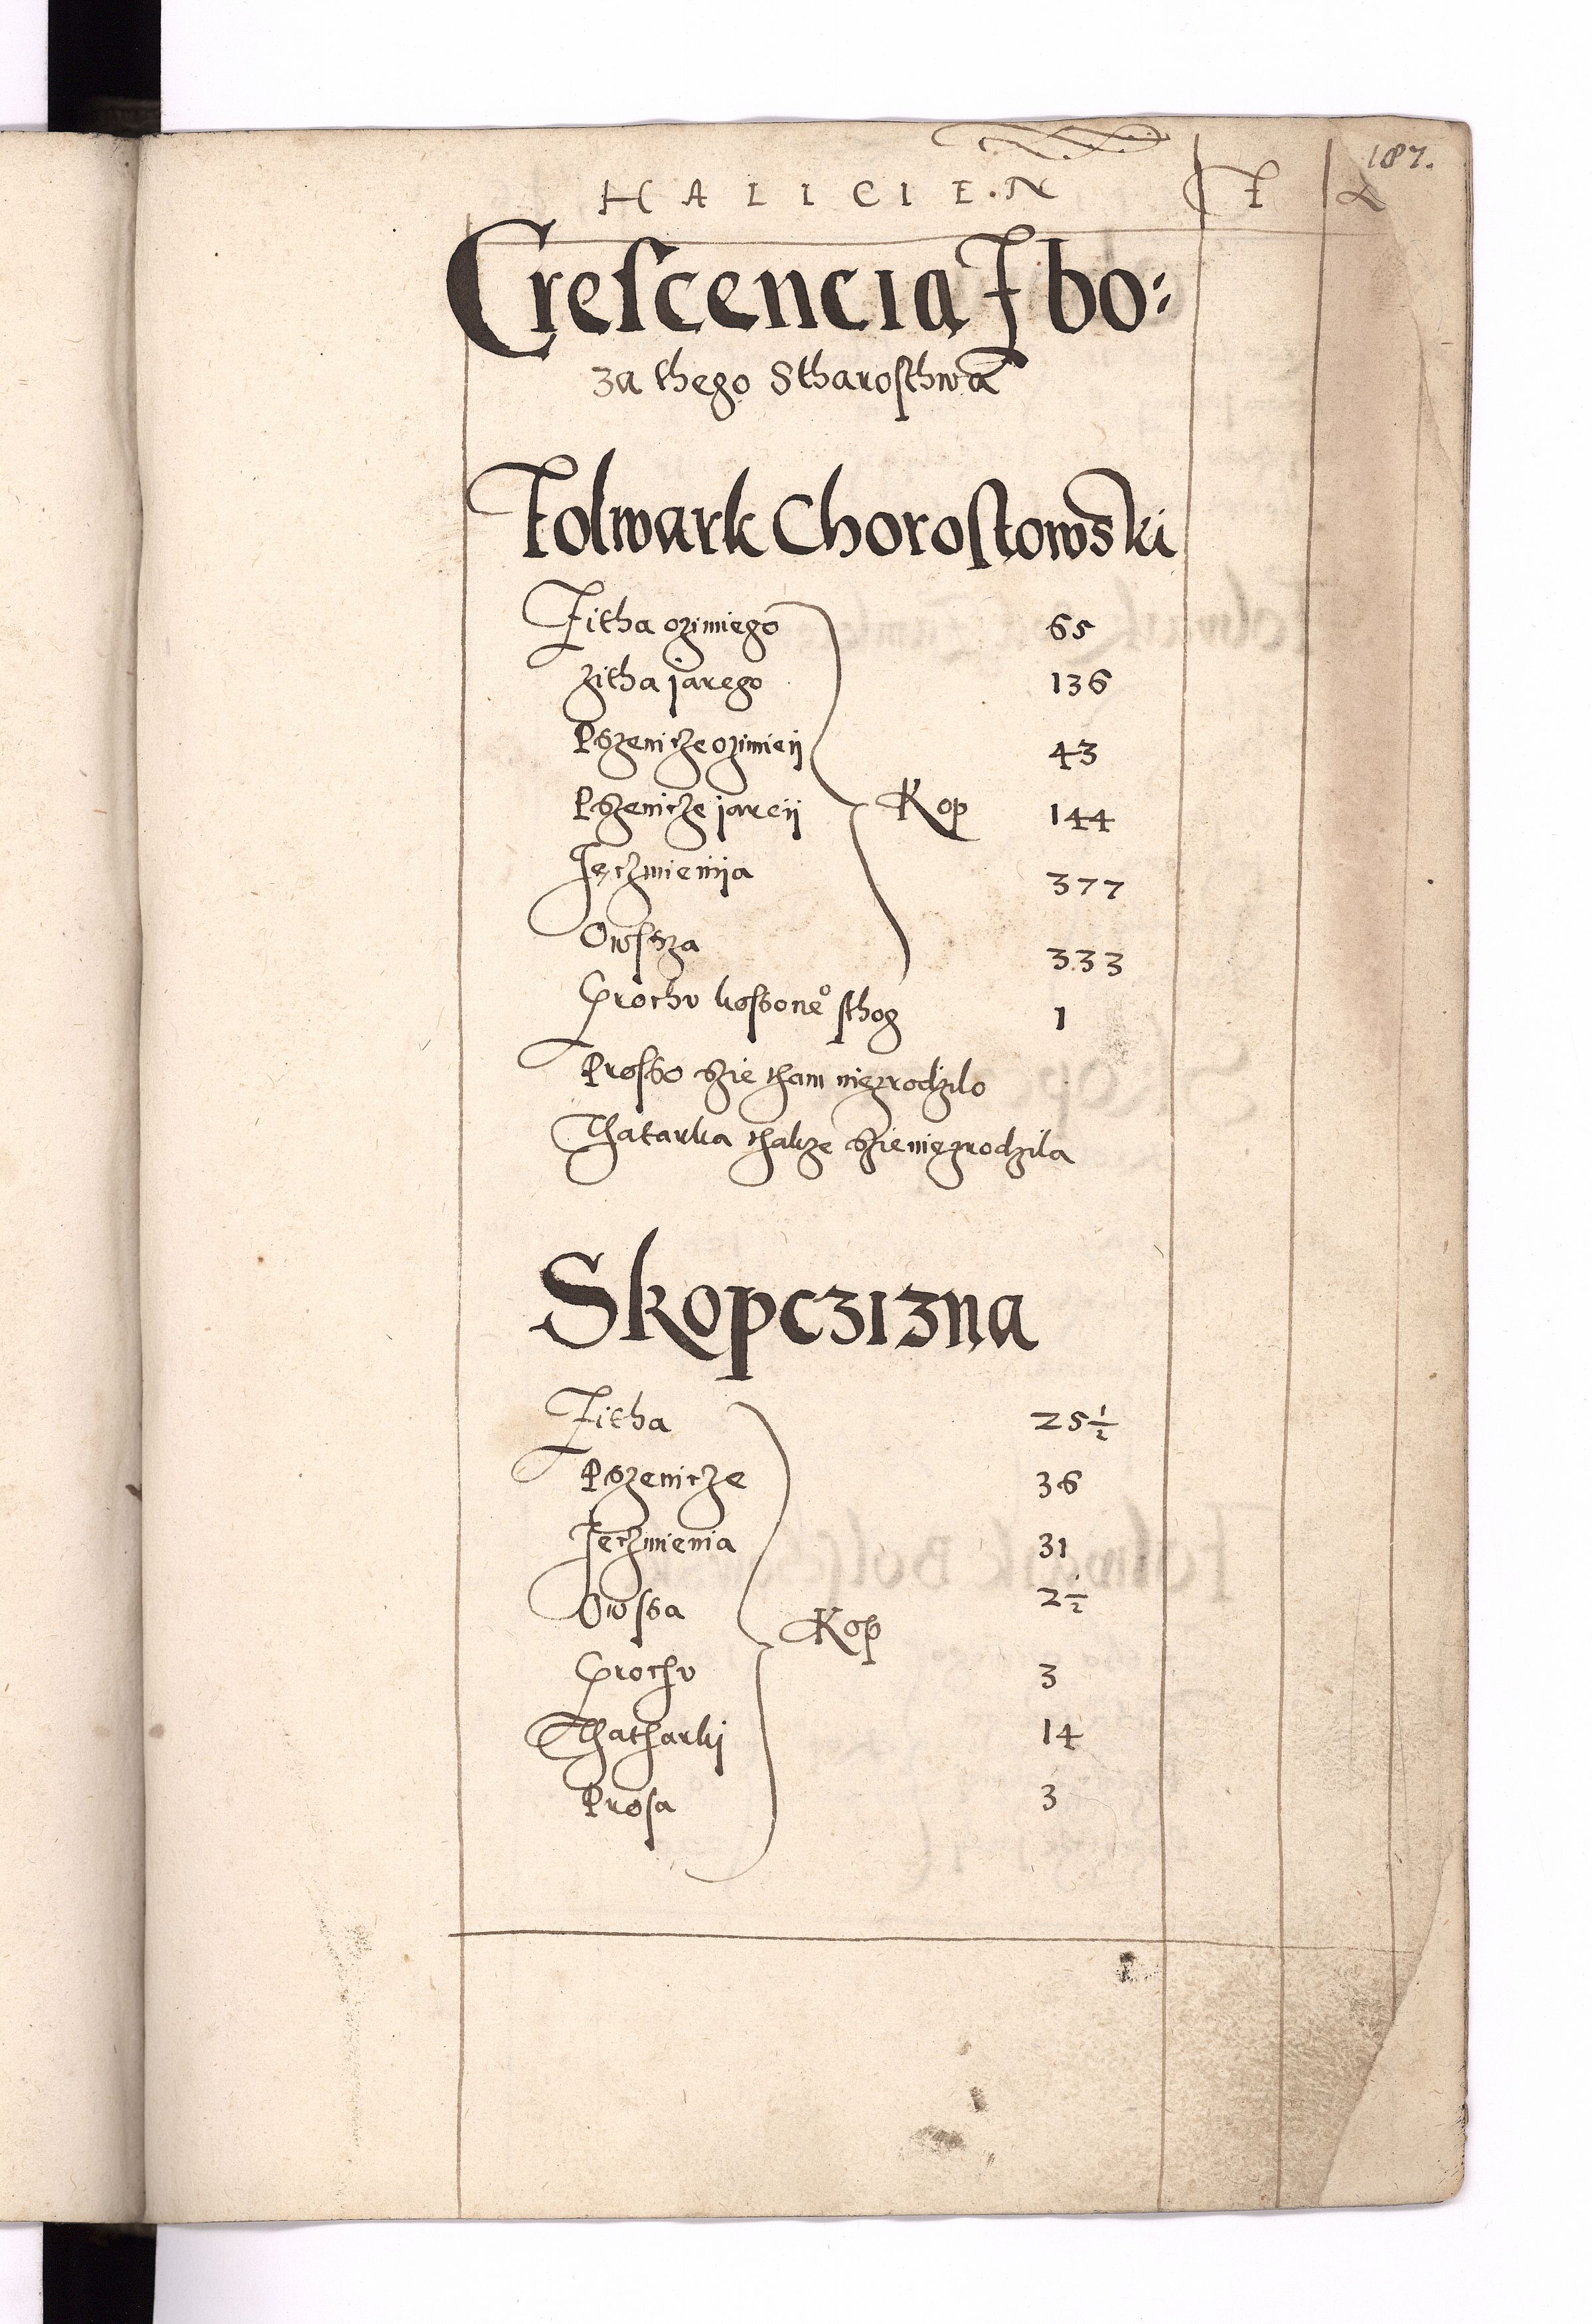 187.
HALICIEN
Crescencią Zbo:
za thego Stharosthwa
Folwark Chorostowski
Zitha ozimiego 65
Zitha jarego 136
Pszenicze ozimieij 43
Pszenicze jareij Kop 144
Jęczmienija 377
Owssza 333
Grochv kossone° sthog 1
Prosso szie tham niezrodzilo
Thatarka thakze szie niezrodzila
Skopczizna
Zitha 25 1/2
Pszenicze 36
Jeczmienia 31
Owssa 2 1/2
Kop
Grochv 3
Thatharkj 14
Prosa 3